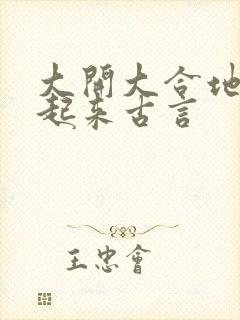 大開大合地
起來古言
王忠會